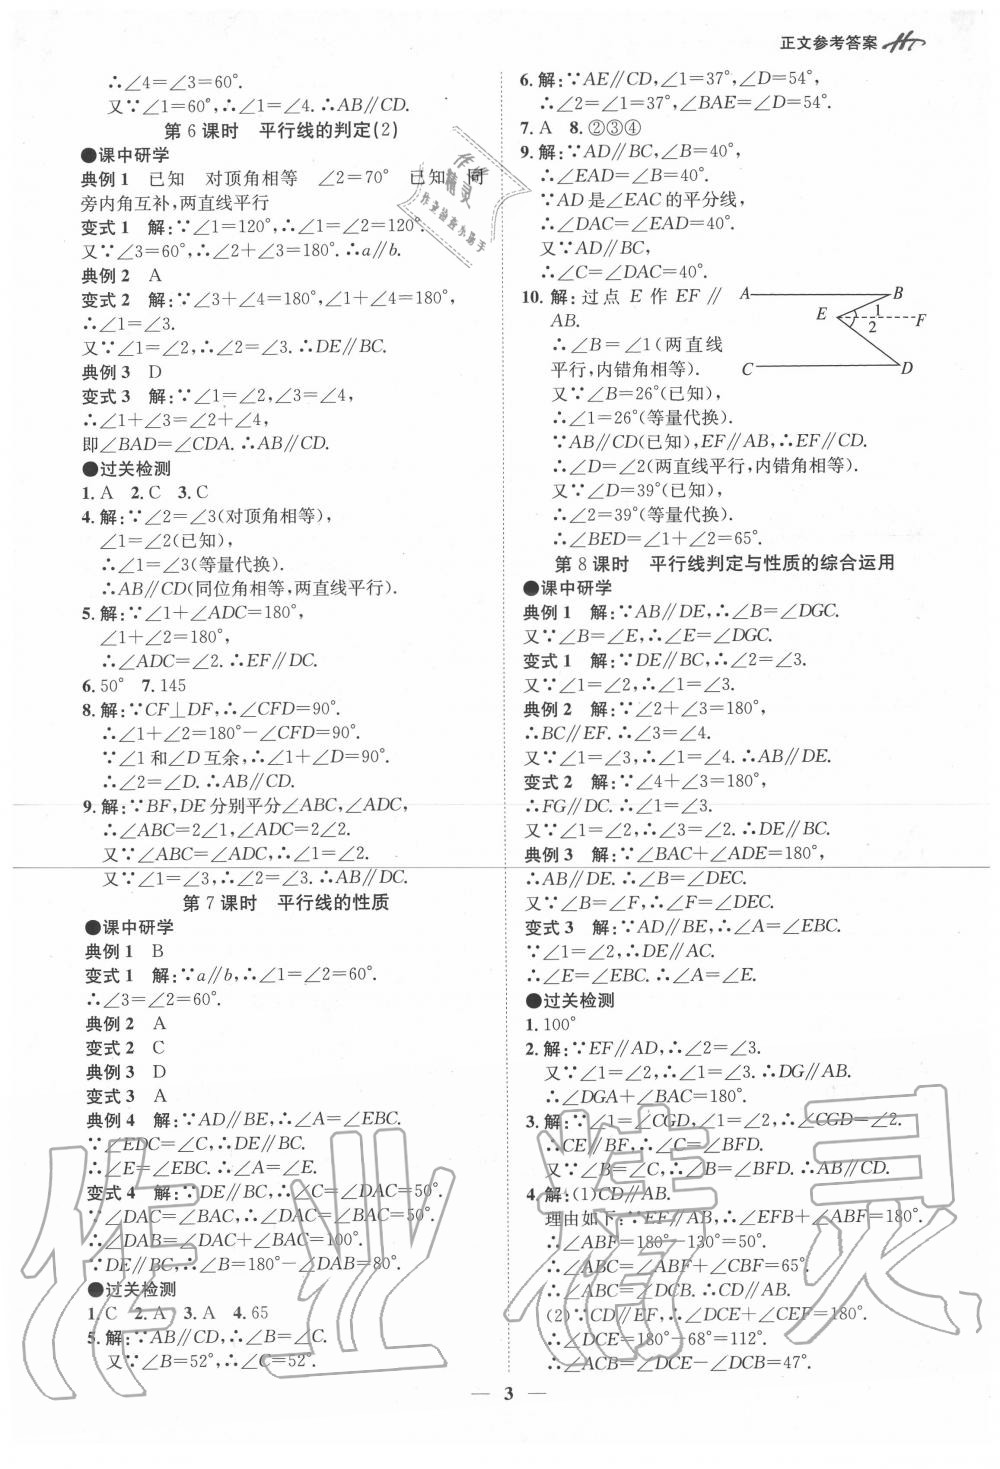 正文参考答案
∴∠4=∠3=60°.
又∵∠1=60°,∴∠1=∠4.∴AB∥CD.
第 6 课时 平行线的判定(2)
●课中研学
典例 1 已知 对顶角相等 ∠2=70° 已知 同
旁内角互补,两直线平行
变式 1 解:∵∠1=120°,∴∠1=∠2=120°.
又∵∠3=60°,∴∠2+∠3=180°.∴a∥b.
典例 2 A
变式 2 解:∵∠3+∠4=180°,∠1+∠4=180°,
∴∠1=∠3.
又∵∠1=∠2,∴∠2=∠3.∴DE∥BC.
典例 3 D
变式 3 解:∵∠1=∠2,∠3=∠4,
∴∠1+∠3=∠2+∠4,
即∠BAD=∠CDA.∴AB∥CD.
●过关检测
1. A 2. C 3. C
4. 解:∵∠2=∠3(对顶角相等),
∠1=∠2(已知),
∴∠1=∠3(等量代换).
∴AB∥CD(同位角相等,两直线平行).
5. 解:∵∠1+∠ADC=180°,
∠1+∠2=180°,
∴∠ADC=∠2.∴EF∥DC.
6. 50° 7. 145
8. 解:∵CF⊥DF,∴∠CFD=90°.
∴∠1+∠2=180°-∠CFD=90°.
∵∠1和∠D互余,∴∠1+∠D=90°.
∴∠2=∠D.∴AB∥CD.
9. 解:∵BF,DE分别平分∠ABC,∠ADC,
∴∠ABC=2∠1,∠ADC=2∠2.
又∵∠ABC=∠ADC,∴∠1=∠2.
又∵∠1=∠3,∴∠2=∠3.∴AB∥DC.
第 7 课时 平行线的性质
●课中研学
典例 1 B
变式 1 解:∵a∥b,∴∠1=∠2=60°.
∴∠3=∠2=60°.
典例 2 A
变式 2 C
典例 3 D
变式 3 A
典例 4 解:∵AD∥BE,∴∠A=∠EBC.
∵∠EDC=∠C,∴DE∥BC.
∴∠E=∠EBC.∴∠A=∠E.
变式 4 解:∵DE∥BC,∴∠C=∠DAC=50°.
∵∠DAC=∠BAC,∴∠DAC=∠BAC=50°.
∴∠DAB=∠DAC+∠BAC=100°.
∵DE∥BC,∴∠B=180°-∠DAB=80°.
●过关检测
1. C 2. A 3. A 4. 65
5. 解:∵AB∥CD,∴∠B=∠C.
又∵∠B=52°,∴∠C=52°.
6. 解:∵AE∥CD,∠1=37°,∠D=54°,
∴∠2=∠1=37°,∠BAE=∠D=54°.
7. A 8. ②③④
9. 解:∵AD∥BC,∠B=40°,
∴∠EAD=∠B=40°.
∵AD是∠EAC的平分线,
∴∠DAC=∠EAD=40°.
又∵AD∥BC,
∴∠C=∠DAC=40°.
10. 解:过点 E 作 EF∥
AB.
∴∠B=∠1(两直线
平行,内错角相等).
又∵∠B=26°(已知),
∴∠1=26°(等量代换).
∵AB∥CD(已知),EF∥AB,∴EF∥CD.
∴∠D=∠2(两直线平行,内错角相等).
又∵∠D=39°(已知),
∴∠2=39°(等量代换).
∴∠BED=∠1+∠2=65°.
A B
E 1
2 F
C D
第 8 课时 平行线判定与性质的综合运用
●课中研学
典例 1 解:∵AB∥DE,∴∠B=∠DGC.
又∵∠B=∠E,∴∠E=∠DGC.
变式 1 解:∵DE∥BC,∴∠2=∠3.
又∵∠1=∠2,∴∠1=∠3.
典例 2 解:∵∠2+∠3=180°,
∴BC∥EF.∴∠3=∠4.
又∵∠1=∠3,∴∠1=∠4.∴AB∥DE.
变式 2 解:∵∠4+∠3=180°,
∴FG∥DC.∴∠1=∠3.
又∵∠1=∠2,∴∠3=∠2.∴DE∥BC.
典例 3 解:∵∠BAC+∠ADE=180°,
∴AB∥DE.∴∠B=∠DEC.
又∵∠B=∠F,∴∠F=∠DEC.
变式 3 解:∵AD∥BE,∴∠A=∠EBC.
∵∠1=∠2,∴DE∥AC.
∴∠E=∠EBC.∴∠A=∠E.
●过关检测
1. 100°
2. 解:∵EF∥AD,∴∠2=∠3.
又∵∠1=∠2,∴∠1=∠3.∴DG∥AB.
∴∠DGA+∠BAC=180°.
3. 解:∵∠1=∠CGD,∠1=∠2,∴∠CGD=∠2.
∴CE∥BF,∴∠C=∠BFD.
又∵∠B=∠C,∴∠B=∠BFD.∴AB∥CD.
4. 解:(1)CD∥AB.
理由如下:∵EF∥AB,∴∠EFB+∠ABF=180°.
∴∠ABF=180°-130°=50°.
∴∠ABC=∠ABF+∠CBF=65°.
∴∠ABC=∠DCB.∴CD∥AB.
(2)∵CD∥EF,∴∠DCE+∠CEF=180°.
∴∠DCE=180°-68°=112°.
∴∠ACB=∠DCE-∠DCB=47°.
— 3 —
作业精灵
作业精灵
作业检查小助手